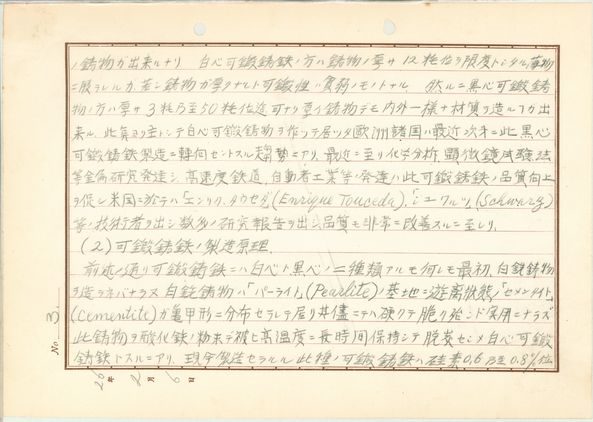 ノ鋳物ガ出来ルナリ 白心可鍛鋳鉄ノ方ハ鋳物ノ厚サ12粍位ヲ限度トシタル薄物
ニ限ラレルガ、若シ鋳物ガ厚クナルト可鍛性ハ貧弱ノモノトナル 然ルニ黒心可鍛鋳
物ノ方ハ厚サ3粍乃至50粍位迄可ナリ厚イ鋳物デモ内外一様ナ材質ヲ造ルコトガ出
来ル、此奌ヨリ主トシテ白心可鍛鋳物ヲ作ツテ居ツタ欧洲諸国ハ最近次第ニ此黒心
可鍛鋳鉄製造ニ轉向セントスル趨勢ニアリ、最近ニ至リ化学分析、顕微鏡試験法
等金属研究発達シ、高速度鉄道、自動者工業等ノ発達ハ此可鍛鋳鉄ノ品質向上
ヲ促シ米国ニ於テハ「エンリク、タウセダ」(Enrique Touceda)、「シユワルツ」(Schwarz)
等ノ技術者ヲ出シ数多ノ研究報告ヲ出シ品質モ非常ニ改善スルニ至レリ、
(2)可鍛鋳鉄ノ製造原理
前述ノ通リ可鍛鋳鉄ニハ白心ト黒心ノ二種類アルモ何レモ最初、白銑鋳物
ヲ造ラネバナラヌ 白銑鋳物ハ「パーライト」(Pearlite)ノ基地ニ遊離状態ノ「セメンタイト」
(Cementite)ガ亀甲形ニ分布セラレテ居リ其儘ニテハ硬クテ脆ク殆ンド実用ニナラズ
此鋳物ヲ酸化鉄ノ粉末デ被ヒ高温度ニ長時間保持シテ脱炭セシメ白心可鍛
鋳鉄トスルニアリ、現今製造セラルル此種ノ可鍛鋳鉄ハ硅素0.6乃至0.8%位
No. 3
26年 2月 6日